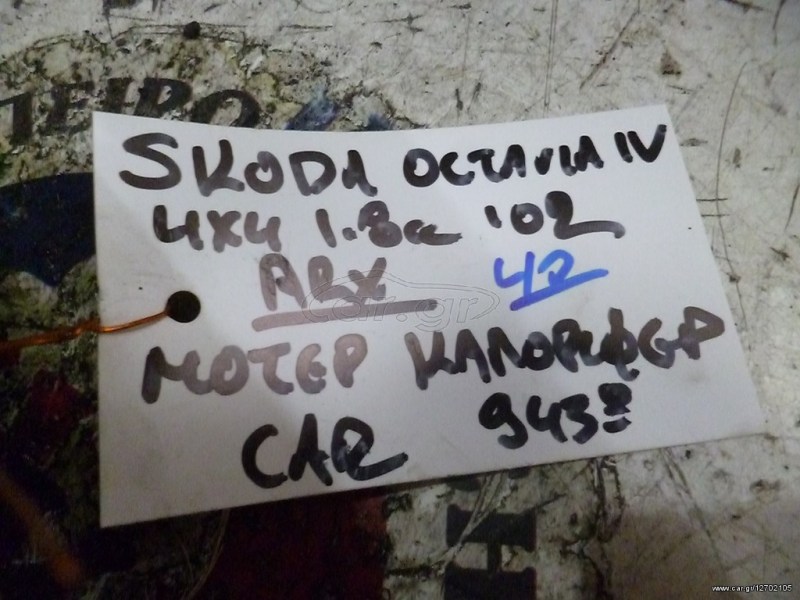 ΠΕΙΡΟ
SKODA OCTAVIA IV
4X4 1.8cc '02
ARX 42
ΜΟΤΕΡ ΚΑΛΟΡΙΦΕΡ
CAR 9438
car.gr
www.car.gr/12702105